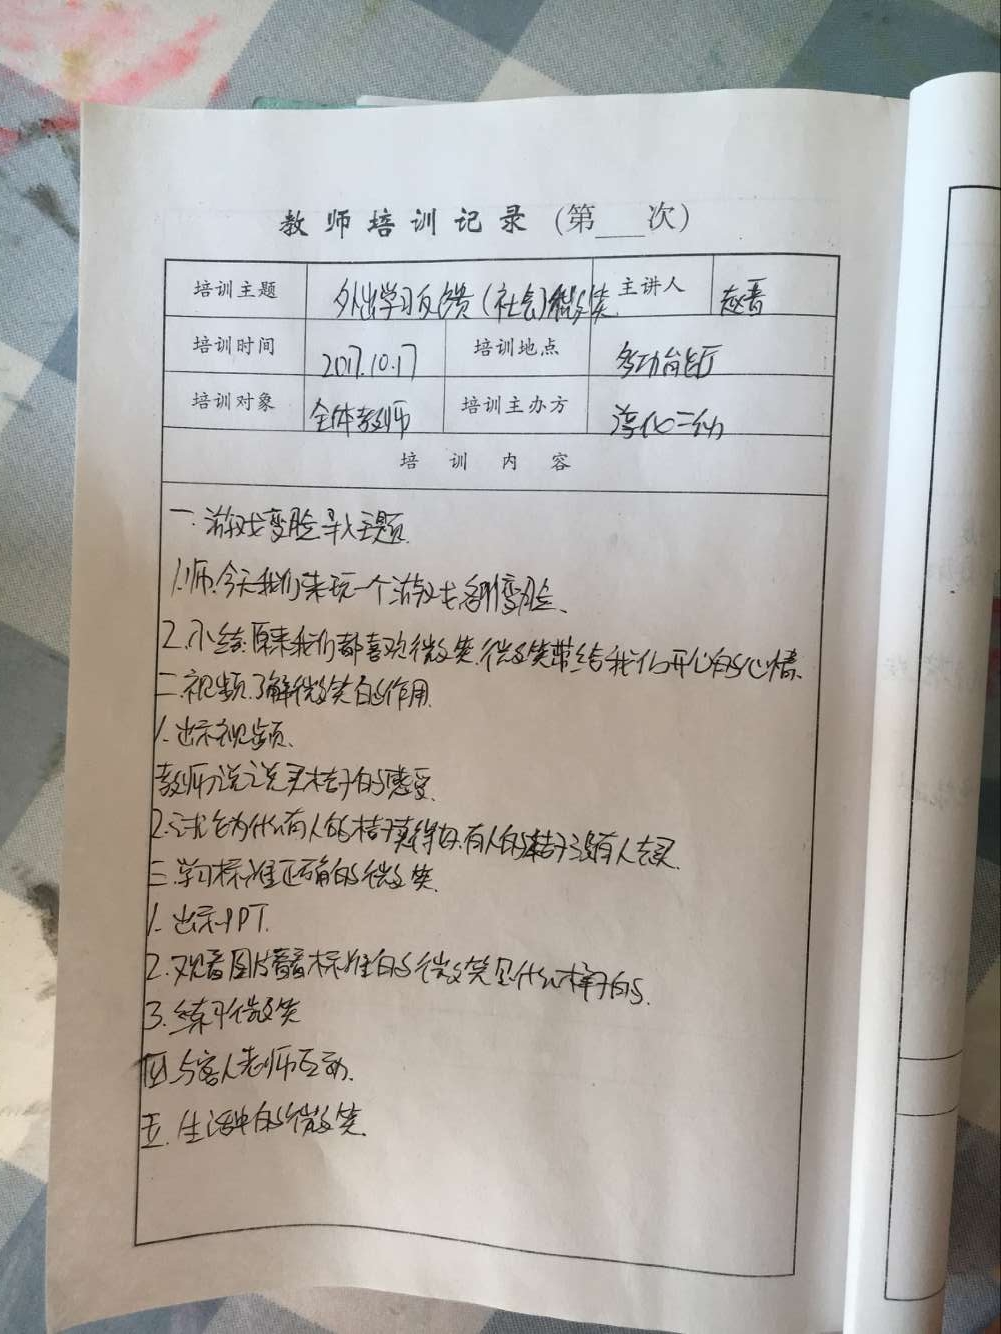 教师培训记录（第___次）
培训主题 外出学习反馈（社会）微笑 主讲人 赵晋
培训时间 2017.10.17 培训地点 多功能厅
培训对象 全体教师 培训主办方 淳化二幼
培训内容
一.游戏变脸导入主题.
1.师.今天我们来玩一个游戏 变脸、
2.小结:原来我们都喜欢微笑.微笑带给我们开心的心情.
二.视频.了解微笑的作用.
1.出示视频.
教师说说买桔子的感受.
2.讨论为什么有人的桔子卖得好.有人的桔子没有人去买.
三.学习标准正确的微笑.
1.出示PPT.
2.观看图片看看标准的微笑是什么样子的.
3.练习微笑
四.与客人老师互动.
五.生活中的微笑.